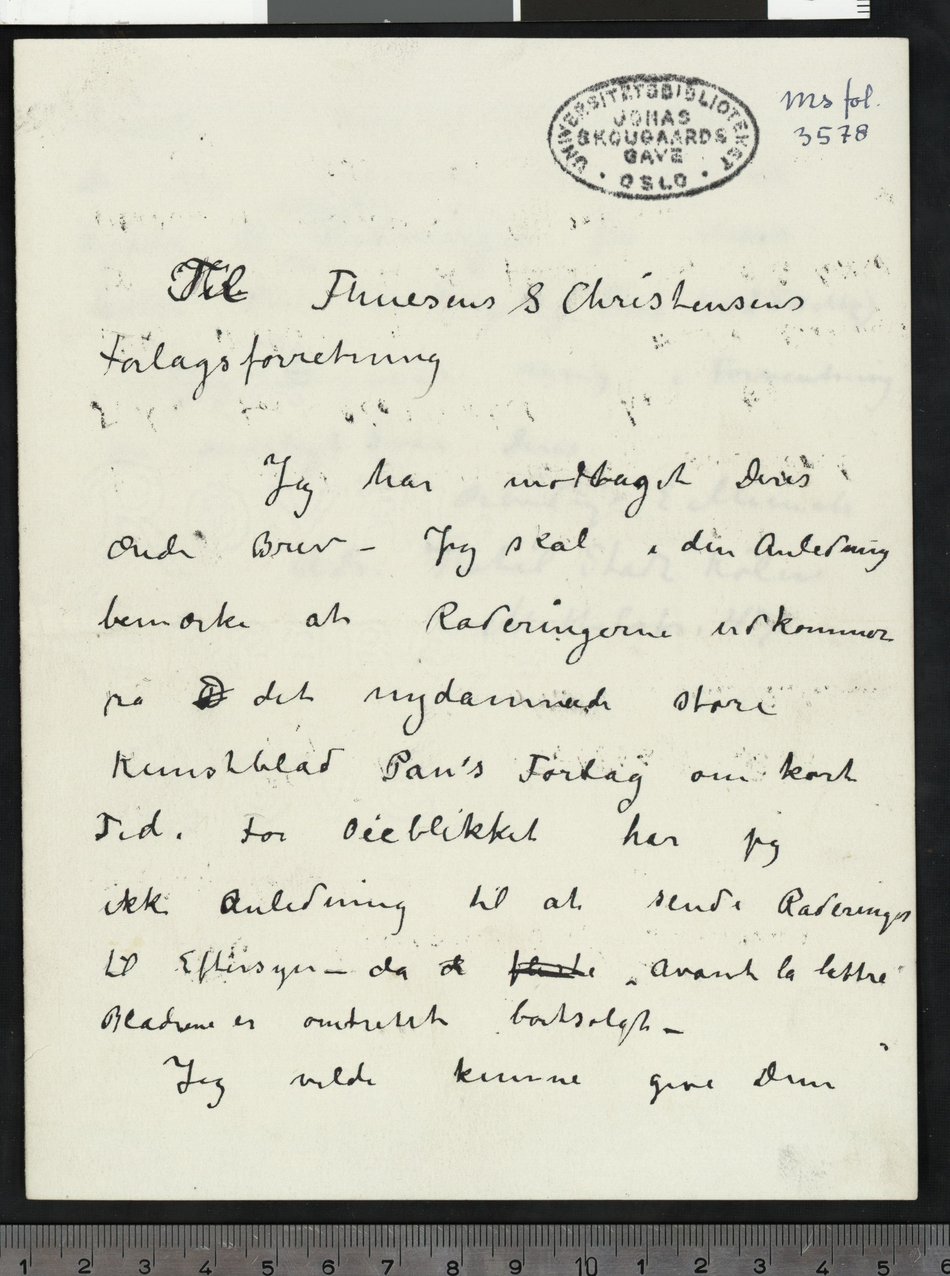 UNIVERSITETSBIBLIOTEKET
JONAS
SKOUGAARDS
GAVE
• OSLO •
Ms fol.
3578
Til Thuesens & Christensens
Forlagsforretning
Jeg har modtaget Deres
ærede Brev – Jeg skal i den Anledning
bemærke at Raderingerne udkommer
på det nydannede store
Kunstblad Pan's Forlag om kort
Tid. For Øieblikket har jeg
ikke Anledning til at sende Raderinger
til Eftersyn – da de fleste „avant la lettre"
Bladene er omtrent bortsolgt –
Jeg vilde kunne give Dem
1 2 3 4 5 6 7 8 9 10 1 2 3 4 5